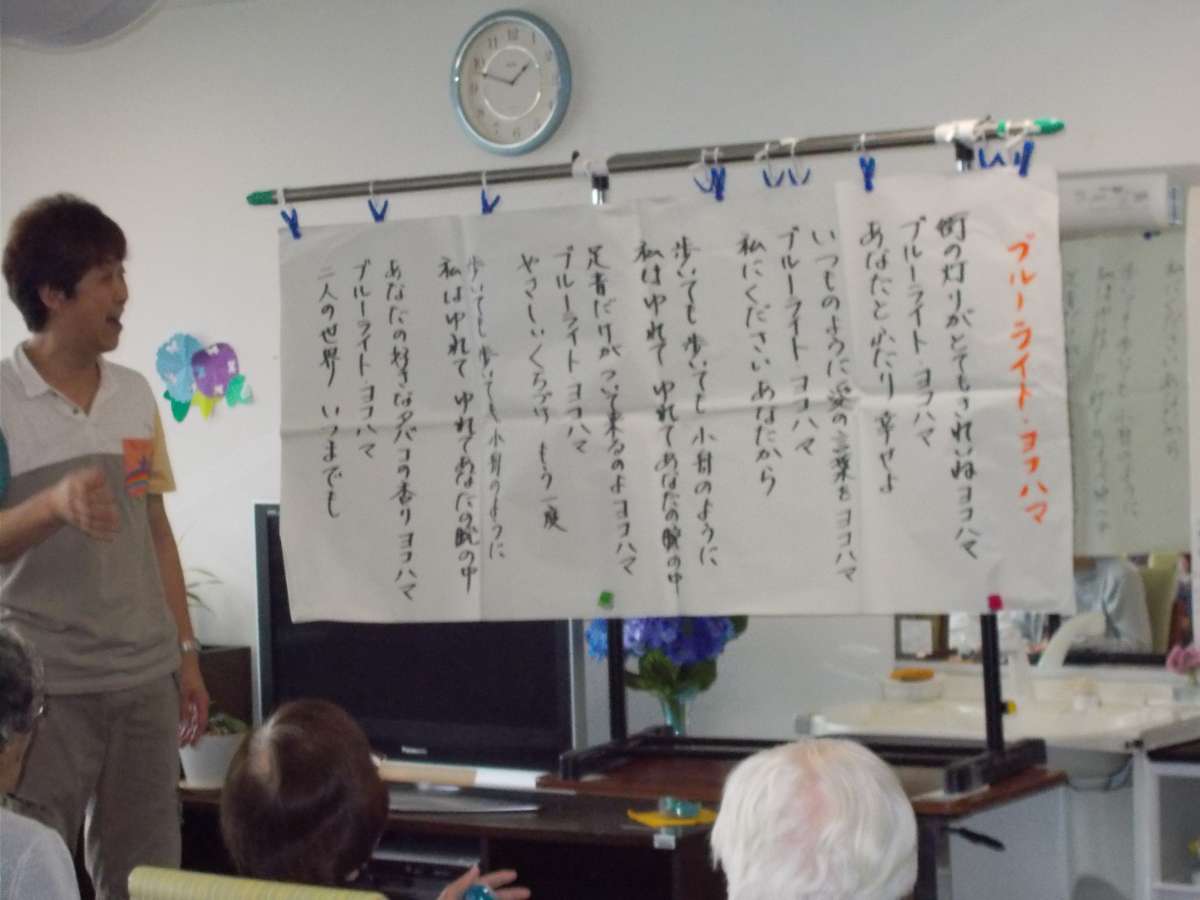 ブルーライト・ヨコハマ
街の灯りがとてもきれいねヨコハマ
ブルーライト ヨコハマ
あなたと ふたり 幸せよ
いつものように 愛の言葉を ヨコハマ
ブルーライト ヨコハマ
私にください あなたから
歩いても 歩いても 小舟のように
私は ゆれて ゆれて あなたの腕の中
足音だけが ついて来るのよ ヨコハマ
ブルーライト ヨコハマ
やさしい くちづけ もう一度
歩いても 歩いても 小舟のように
私は ゆれて ゆれて あなたの腕の中
あなたの好きな タバコの香り ヨコハマ
ブルーライト ヨコハマ
二人の世界 いつまでも
Panasonic